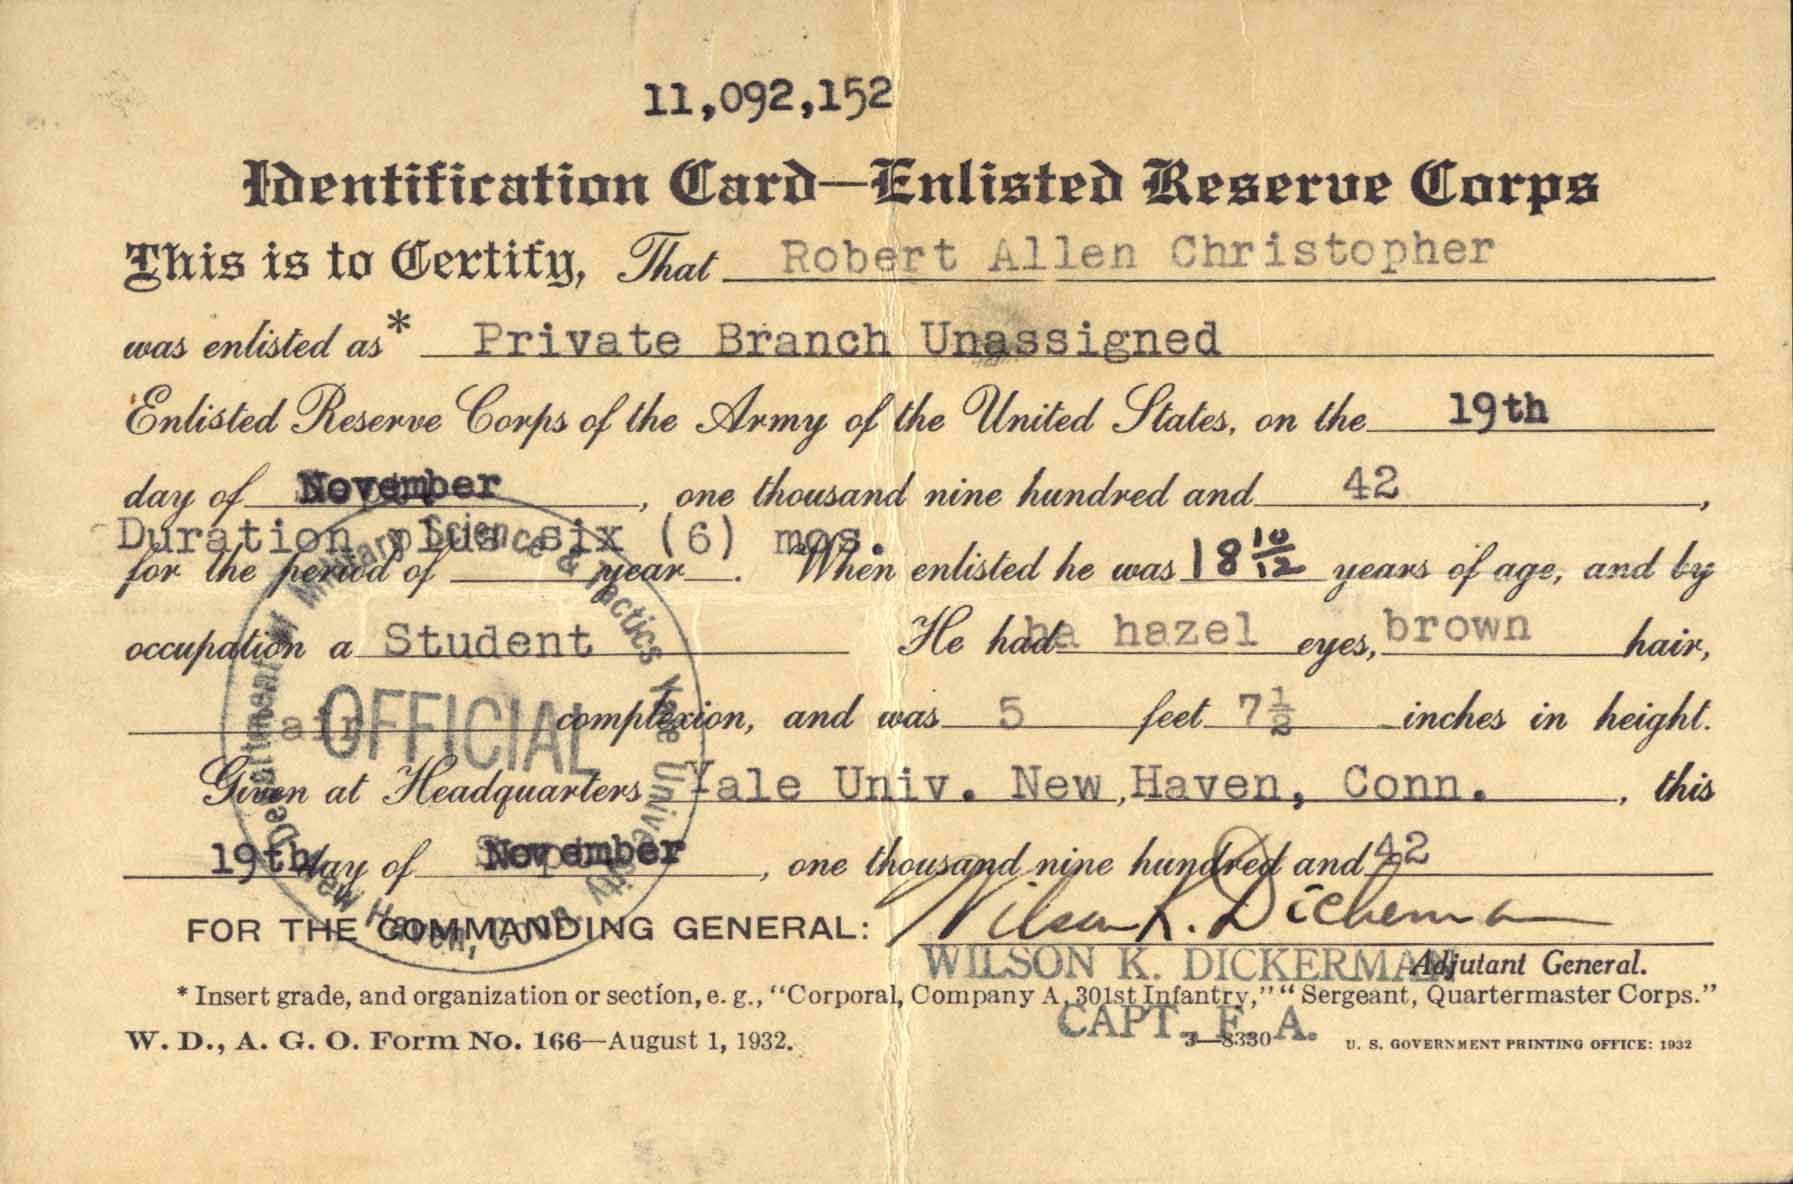 11,092,152
Identification Card—Enlisted Reserve Corps
This is to Certify, That Robert Allen Christopher
was enlisted as* Private Branch Unassigned
Enlisted Reserve Corps of the Army of the United States, on the 19th
day of November, one thousand nine hundred and 42,
Duration plus six (6) mos.
for the period of year. When enlisted he was 18 10/12 years of age, and by
occupation a Student He had ha hazel eyes, brown hair,
air complexion, and was 5 feet 7½ inches in height.
Given at Headquarters Yale Univ. New Haven, Conn., this
19th day of November, one thousand nine hundred and 42
FOR THE COMMANDING GENERAL: Wilson K. Dickerman
WILSON K. DICKERMAN Adjutant General.
* Insert grade, and organization or section, e. g., “Corporal, Company A, 301st Infantry,” “Sergeant, Quartermaster Corps.”
CAPT. F. A.
W. D., A. G. O. Form No. 166—August 1, 1932. 3—8330 U. S. GOVERNMENT PRINTING OFFICE: 1932
Department of Military Science & Tactics Yale University
New Haven, Conn.
OFFICIAL